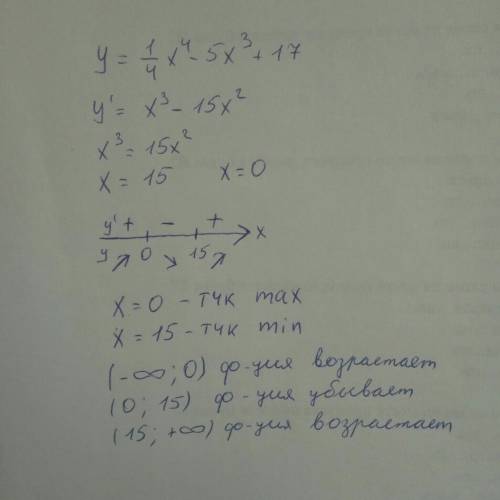 y = 1/4 x⁴ - 5x³ + 17
y' = x³ - 15x²
x³ = 15x²
x = 15 x = 0
y' + - + x
y ↗ 0 ↘ 15 ↗
x = 0 - тчк max
x = 15 - тчк min
(-∞; 0) ф-ция возрастает
(0; 15) ф-ция убывает
(15; +∞) ф-ция возрастает